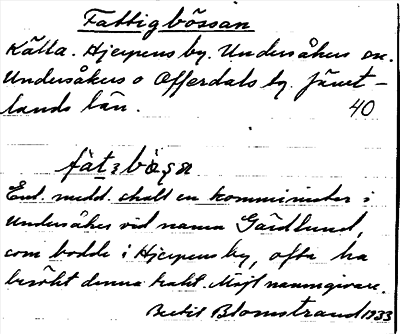 Fattigbössan
Källa. Hjerpens by. Undersåkers sn.
Undersåkers o Offerdals tg. Jämt-
lands län. 40
fàt₂bö̀sa
Enl. medd. skall en komminister i
Undersåker vid namn Gärdlund,
som bodde i Hjerpens by, ofta ha
besökt denna trakt. Möjl namngivare.
Bertil Blomstrand 1933